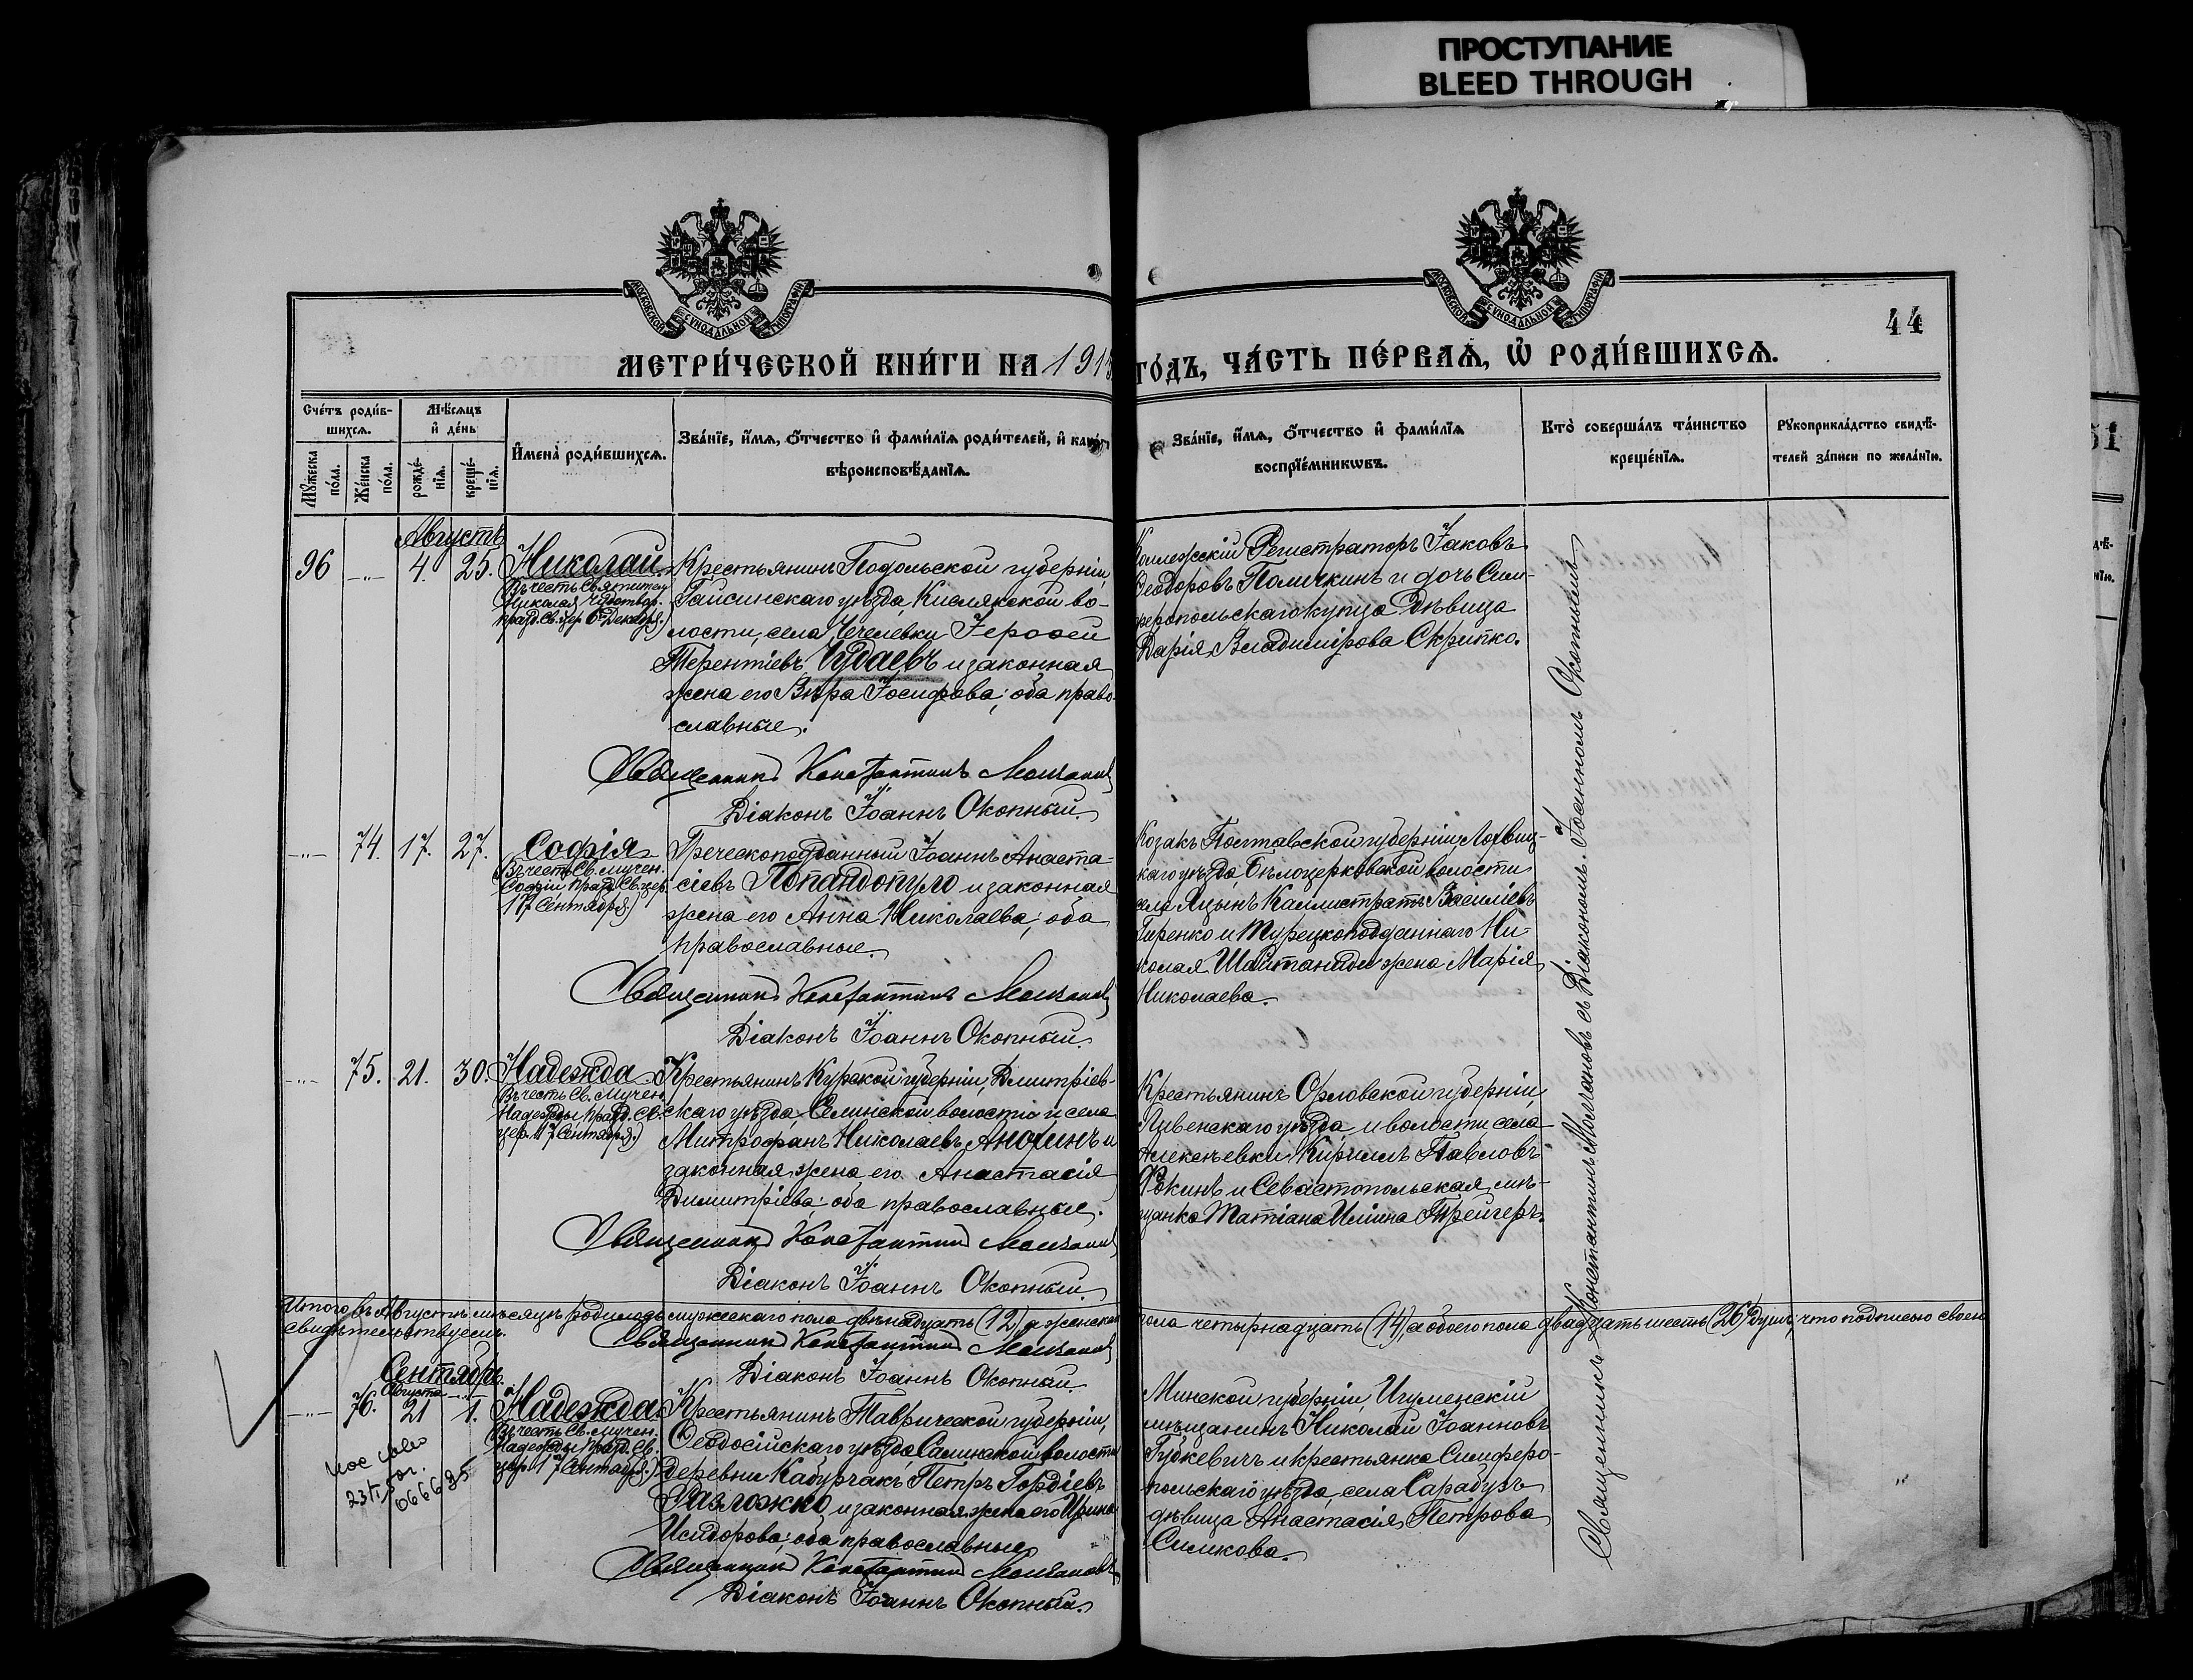 ПРОСТУПАНИЕ
BLEED THROUGH
МОСКОВСКОЙ СѴНОДАЛЬНОЙ ТИПОГРАФІИ
МОСКОВСКОЙ СѴНОДАЛЬНОЙ ТИПОГРАФІИ
44
МЕТРИ́ЧЕСКОЙ КНИ́ГИ НА 191
ГО́ДЪ, ЧА́СТЬ ПЕ́РВАѦ, Ѽ РОДИ́ВШИХСѦ.
Сче́тъ роди́в-
шихсѧ.
Мѣ́сѧцъ
и҆ де́нь
И҆мена̀ роди́вшихсѧ.
Зва́нїе, и҆́мѧ, ѻ҆́тчество и҆ фами́лїѧ роди́телей, и҆ како́гѡ
вѣроисповѣ́данїѧ.
Мꙋ́жеска по́ла.
Же́нска по́ла.
рожде́-
нїѧ.
креще́-
нїѧ.
Зва́нїе, и҆́мѧ, ѻ҆́тчество и҆ фами́лїѧ
воспрїе́мникѡвъ.
Кто̀ соверша́лъ та́инство
креще́нїѧ.
Рꙋкоприкла́дство свидѣ́-
телей за́писи по жела́нїю.
Августъ
96 -"- 4. 25. Николай.
Въ честь Святителя
Николая Чудотвор.
празд. Св. цер. 6го Декабря.)
Крестьянинъ Подольской губерніи,
Гайсинскаго уѣзда, Кисляцкой во-
лости, села Чечелевки Іероѳей
Терентіевъ Чудаевъ и законная
жена его Вѣра Іосифова; оба право-
славные.
Священникъ Константинъ Молчановъ
Діаконъ Іоаннъ Окопный.
Коллежскій Регистраторъ Іаковъ
Ѳеодоровъ Поличкинъ и дочь Сим-
феропольскаго купца дѣвица
Дарія Владимірова Скрипко.
-"- 74. 17. 27. Софія
Въ честь Св. мучен.
Софіи празд. Св. цер.
17 Сентября.)
Греческоподданный Іоаннъ Анаста-
сіевъ Попандопуло и законная
жена его Анна Николаева; оба
православные.
Священникъ Константинъ Молчановъ
Діаконъ Іоаннъ Окопный.
Козакъ Полтавской губерніи, Лохвиц-
каго уѣзда, Бѣлоцерковской волости
села Яцынъ Каллистратъ Василіевъ
Гиренко и Турецкоподданнаго Ни-
колая Шайтаниди жена Марія
Николаева.
-"- 75. 21. 30. Надежда
Въ честь Св. Мучен.
Надежды, празд. Св.
цер. 17 Сентября.)
Крестьянинъ Курской губерніи, Дмитріев-
скаго уѣзда, Селинской волости и села
Митрофанъ Николаевъ Анохинъ и
законная жена его Анастасія
Димитріева; оба православные.
Священникъ Константинъ Молчановъ
Діаконъ Іоаннъ Окопный.
Крестьянинъ Орловской губерніи
Ливенскаго уѣзда и волости, села
Алексѣевки Кириллъ Павловъ
Фокинъ и Севастопольская мѣ-
щанка Татіана Иліина Трейгеръ.
Итого въ Августѣ мѣсяцѣ родилось мужескаго пола двѣнадцать (12) а женскаго
пола четырнадцать (14), а обоего пола двадцать шесть (26) душъ; что подписью своею
свидѣтельствуемъ.
Священникъ Константинъ Молчановъ
Діаконъ Іоаннъ Окопный.
Сентябрь.
Августа
-"- 76. 21 1. Надежда.
Въ честь Св. мучен.
Надежды, празд. Св.
цер. 17 Сентября.)
Крестьянинъ Таврической губерніи,
Ѳеодосійскаго уѣзда, Салинской волости
деревни Кабурчакъ Петръ Гордіевъ
Разложко, и законная жена его Ирина
Исидорова; оба православные.
Священникъ Константинъ Молчановъ
Діаконъ Іоаннъ Окопный.
066695
Минской губерніи, Игуменскій
мѣщанинъ Николай Іоанновъ
Губкевичъ и крестьянка Симферо-
польскаго уѣзда, села Сарабузъ
дѣвица Анастасія Петрова
Симкова.
Священникъ Константинъ Молчановъ съ Діакономъ Іоанномъ Окопнымъ